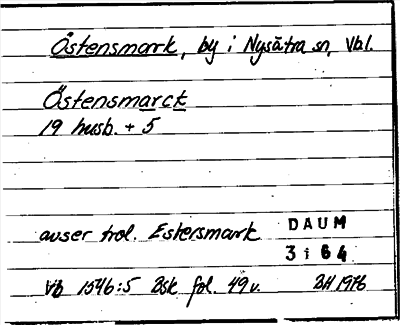 Östensmark, by i Nysätra sn, Vbl.
Östensmarck
19 husb. + 5
avser trol. Estersmark
DAUM
3 i 64
Vb 1546:5 Bsk fol. 49v. BH 1976